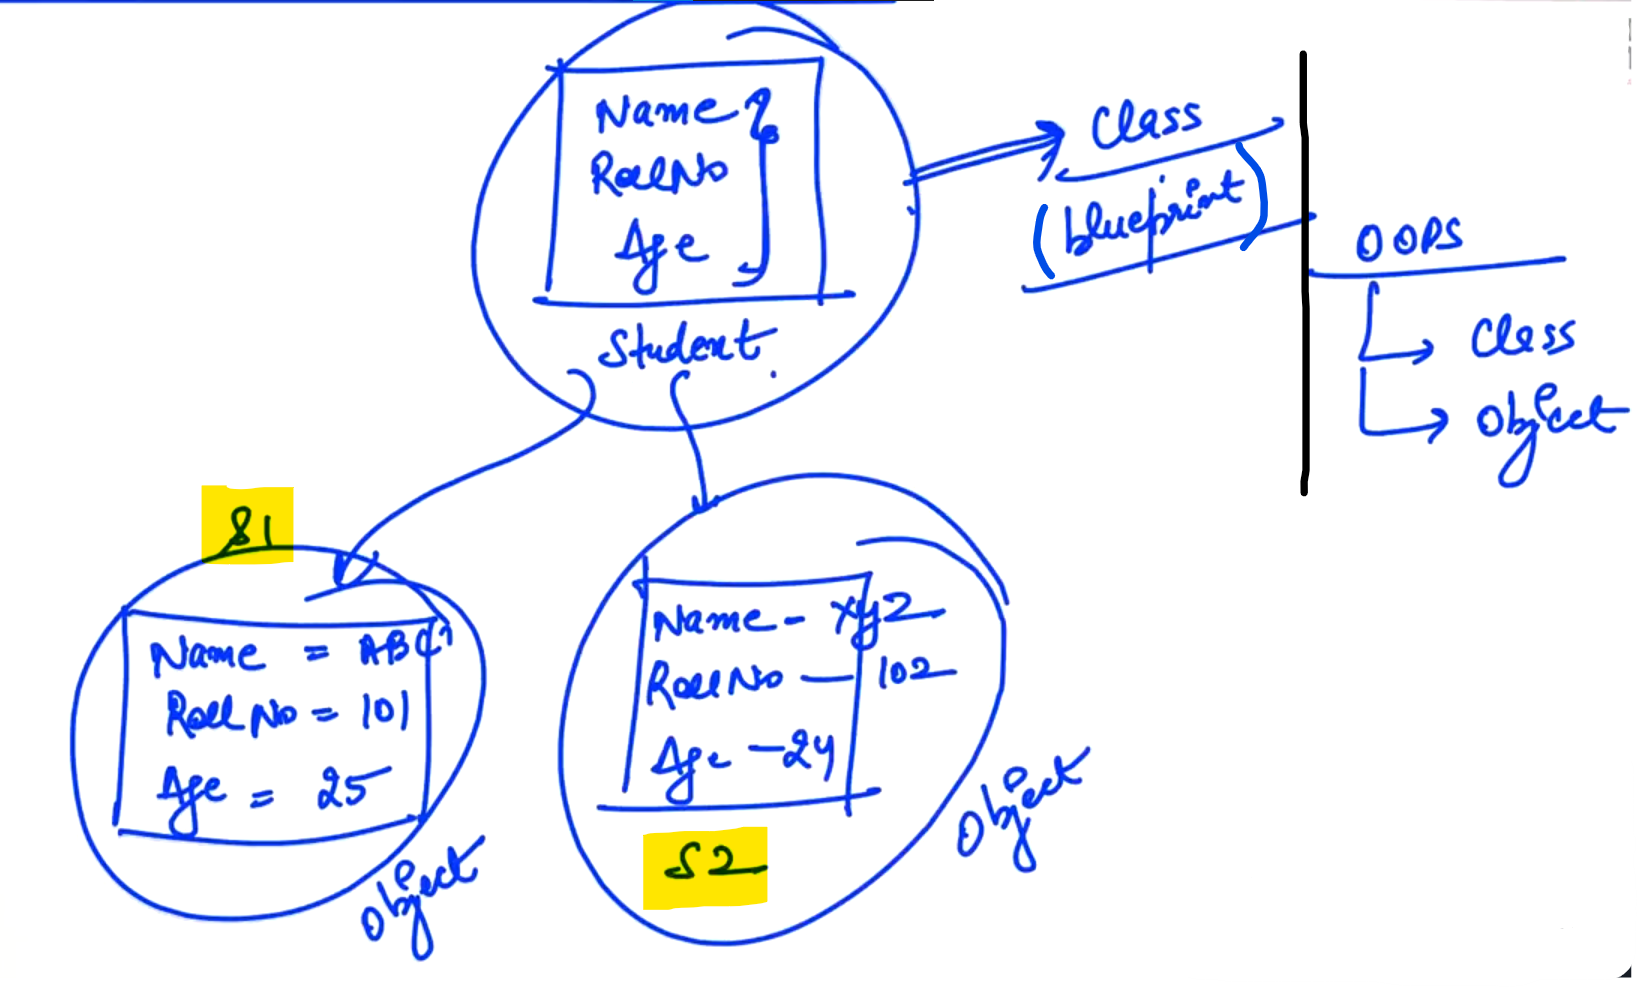 Name
RollNo
Age
Student
Class
(blueprint)
OOPS
Class
Object
S1
Name = ABC
Roll No = 101
Age = 25
Object
Name - xyz
Roll No — 102
Age - 24
S2
Object